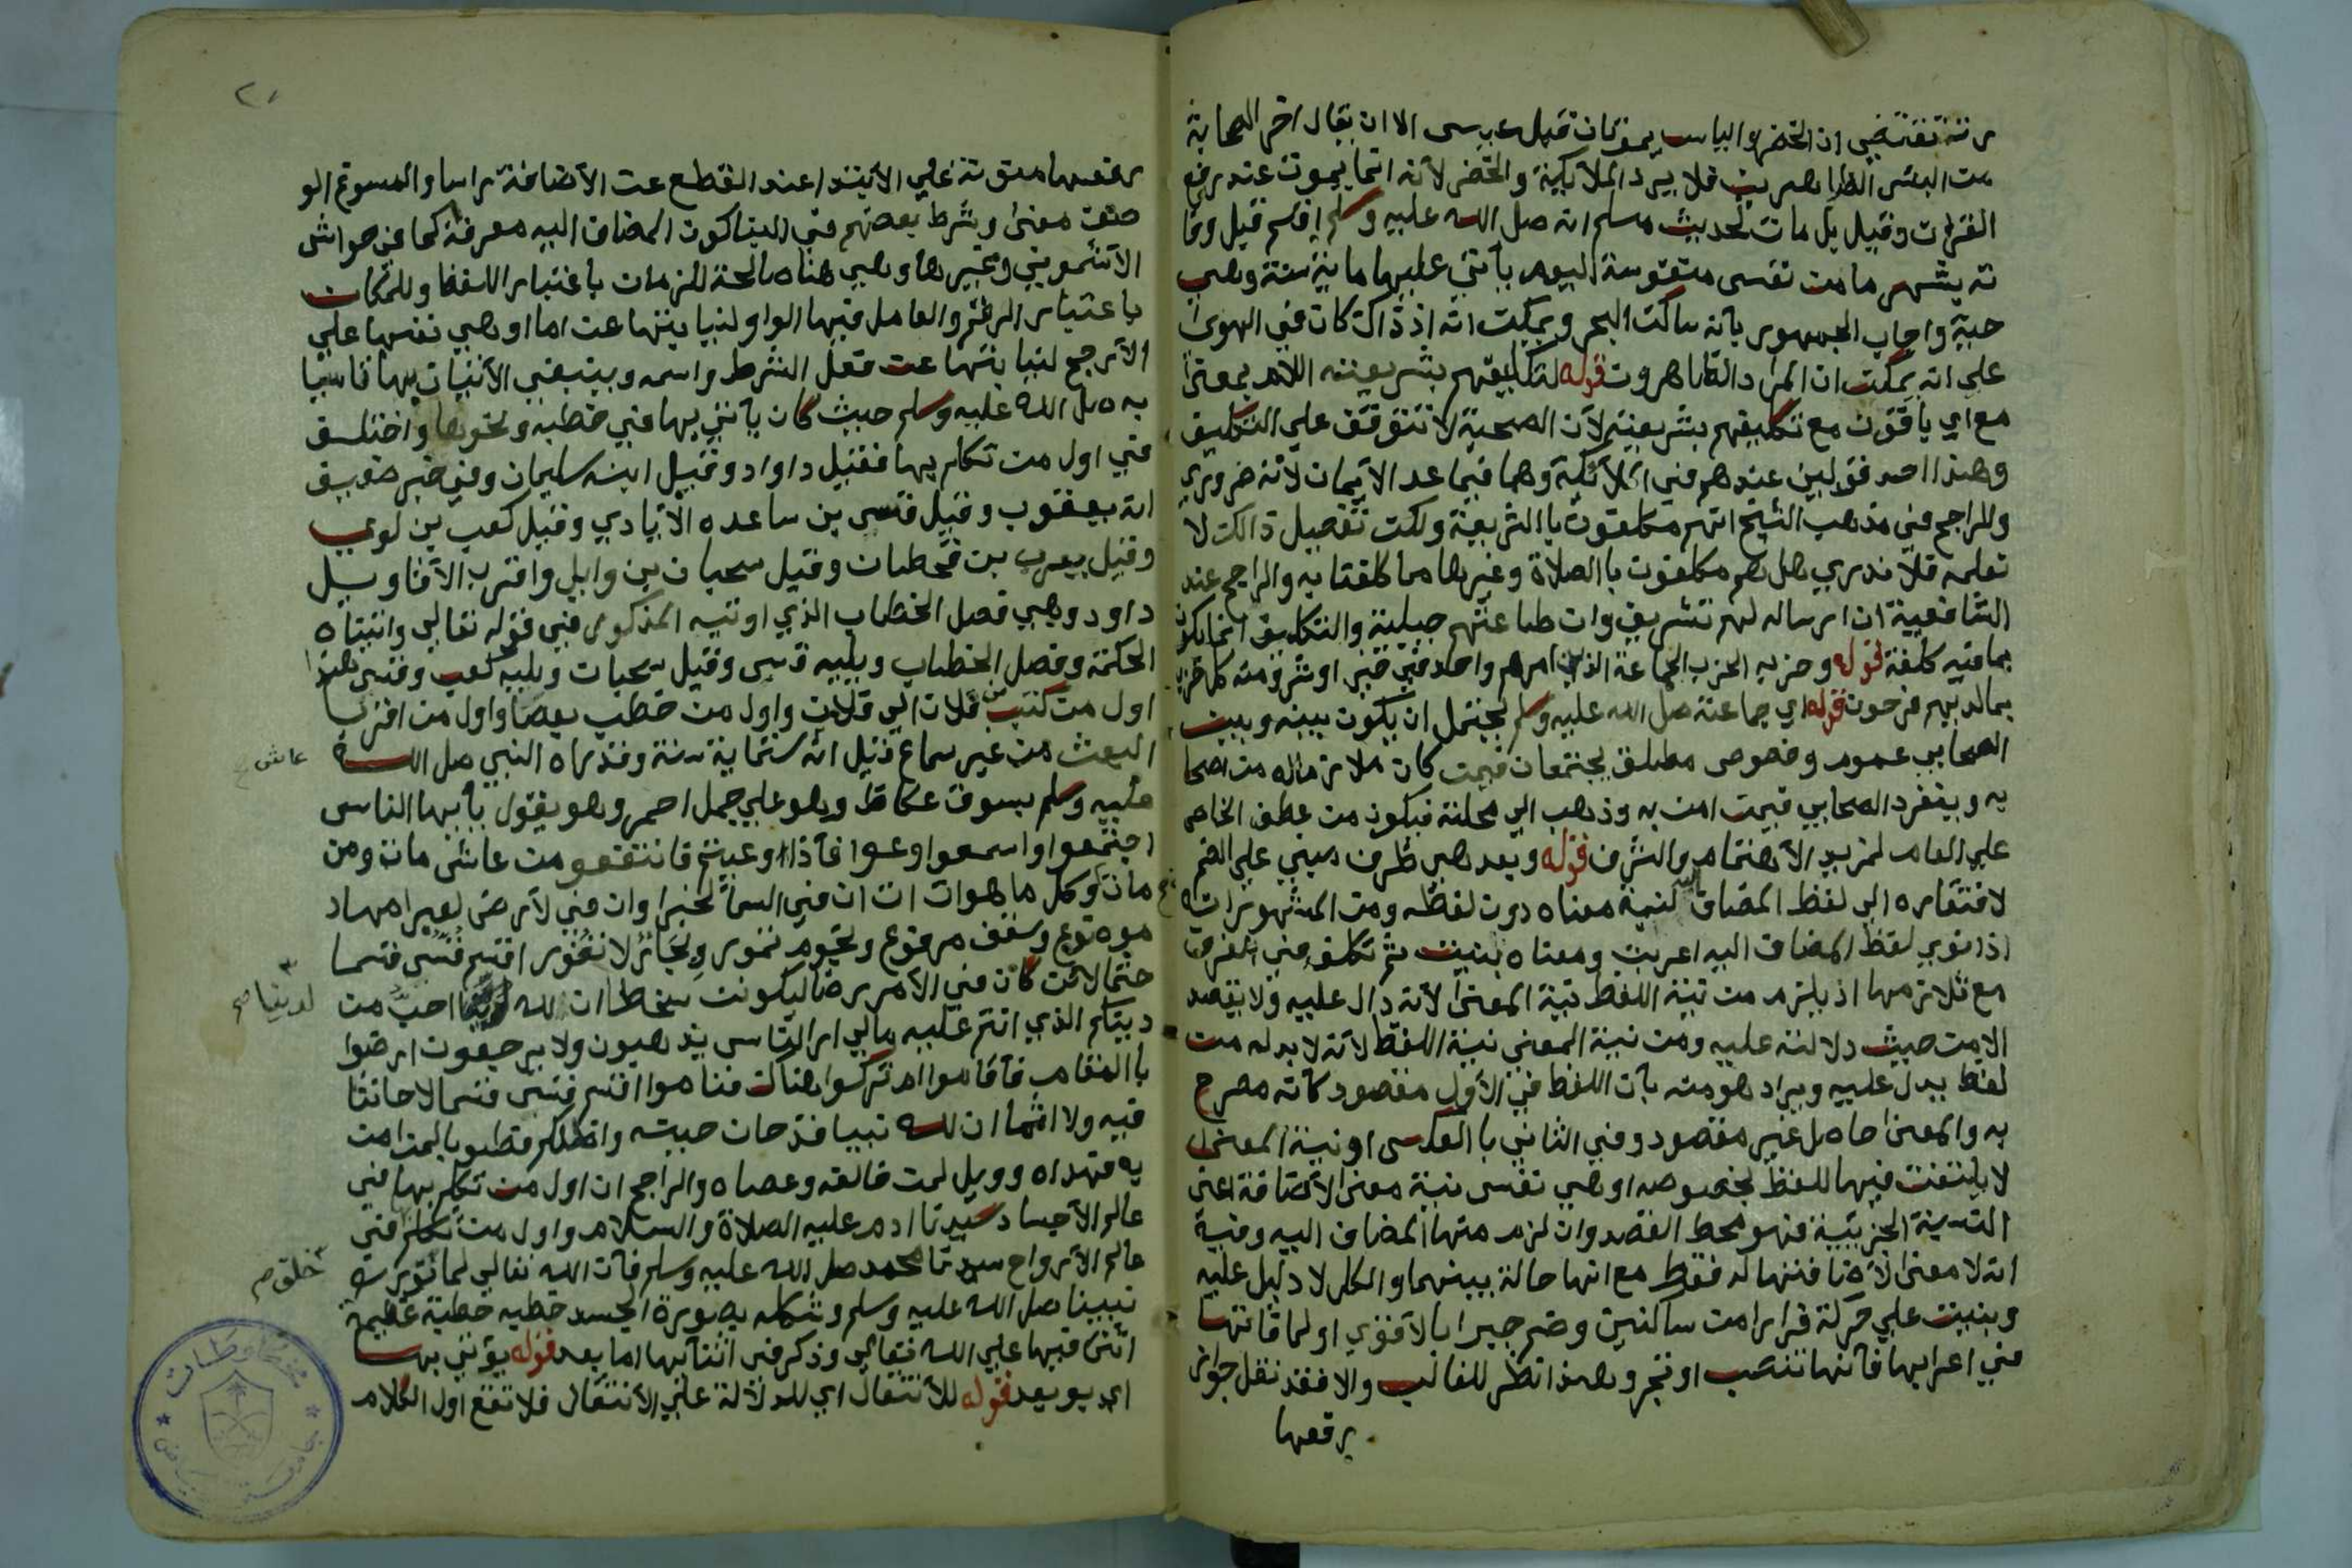 رته تقتضي ان الخضر والياس يموتان قبل عيسى الا ان يقال اخر الصحابة
من البشر الظاهرين فلا يرد الملائكة والخضر لانه انما يموت عند رفع
القران وقيل بل مات لحديث مسلم انه صل الله عليه وسلم اقسم قبل وفا
ته بشهر ما من نفس منفوسة اليوم يأتي عليها ماية سنة وهي
حية واجاب الجمهور بانه ساكن البحر ويمكن انه اذ ذاك كان في الهوى
على انه يمكن ان المراد الظاهرون قوله لتكليفهم بشريعته اللام بمعنى
مع اي باقون مع تكليفهم بشريعته لان الصحبة لا تتوقف علي التكليف
وهذا احد قولين عندهم في الملائكة وهما فيما عد الايمان لانه ضروري
والراجح في مذهب الشيخ انهم مكلفون با الشريعة ولكن تفصيل ذالك لا
نعلمه فلا ندري هل هم مكلفون با الصلاة وغيرها مما كلفنا به والراجح عند
الشافعية ان ارساله لهم تشريف وان طاعتهم جبلية والتكليف انما يكون
بما فيه كلفة قوله وحزبه الحزب الجماعة الذين امرهم واحد في خير او شر ومنه كل حزب
بما لديهم فرحون قوله اي جماعته صل الله عليه وسلم يحتمل ان يكون بينه وبين
الصحابي عموم وخصوص مطلق يجتمعان فيمن كان ملازما له من اصحا
به وينفرد الصحابي فيمن امن به وذهب الي محلته فيكون من عطف الخاص
علي العام لمزيد الاهتمام والشرف قوله وبعد هي ظرف مبني علي الضم
لافتقاره الي لفظ المضاف اليه لنية معناه دون لفظه ومن المشهور انه
اذا نوي لفظ المضاف اليه اعربت ومعناه بنيت ثم تكلف في الفرق
مع تلازمها اذ يلزم من نية اللفظ نية المعنى لانه دال عليه ولا يقصد
الا من حيث دلالته عليه ومن نية المعني نية اللفظ لانه لا بد له من
لفظ يدل عليه ويراد هو منه بان اللفظ في الاول مقصود كانه مصرح
به والمعنى حاصل غير مقصود وفي الثاني با العكس او نية المعنى
لا يلتفت فيها للفظ بخصوصه او هي نفس نية معنى الاضافة اعني
النسبة الجزئية فهو محط القصد وان لزم منها المضاف اليه وفيه
انه لا معنى لاضافتها له فقط مع انها حالة بينهما والكل لا دليل عليه
وبنيت علي حركة فرارا من ساكنين وضم جبرا بالاقوي او لما فاتها
في اعرابها فانها تنصب او تجر وهذا نظر للغالب والا فقد نقل جواز
يرفعها
٢١
رفعها منونة علي الابتدا عند القطع عن الاضافة راسا والمسوغ الو
صف معنى وشرط بعضهم في البنا كون المضاف اليه معرفة كما في حواشي
الاشموني وغيرها وهي هنا صالحة للزمان باعتبار اللفظ وللمكان
باعتبار الرقم والعامل فيها الواو لنيابتها عن اما او هي نفسها علي
الارجح لنيابتها عن فعل الشرط واسمه وينبغي الاتيان بها تاسيا
به صل الله عليه وسلم حيث كان ياتي بها في خطبه ونحوها واختلف
في اول من تكلم بها فقيل داواد وقيل ابنه سليمان وفي خبر ضعيف
انه يعقوب وقيل قس بن ساعده الايادي وقيل كعب بن لوي
وقيل يعرب بن قحطان وقيل سحبان بن وايل واقرب الاقاويل
داود وهي فصل الخطاب الذي اوتيه المذكور في قوله تعالي واتيناه
الحكمة وفصل الخطاب ويليه قس وقيل سحبان ويليه كعب وقس هذا
اول من كتب من فلان الي فلان واول من خطب بعصا واول من اقر با
البعث من غير سماع قيل انه ستماية سنة وقد راه النبي صل الله
عاش
عليه وسلم بسوق عكاظ وهو علي جمل احمر وهو يقول يأيها الناس
اجتمعوا واسمعوا وعوا فاذا وعيتم فانتفعو من عاش مات ومن
مات وكل ما هو ات ات ان في السما لخبرا وان في لارض لعبرا مهاد
موضوع وسقف مرفوع ونجوم تمور وبحار لا تغور اقسم قس قسما
حتما لان كان في الامر رضا ليكونن سخطا ان لله احب من
لدينا صح
دينكم الذي انتم عليه مالي ارا الناس يذهبون ولا يرجعون ارضوا
با المقام فاقاموا ام تركوا هناك فناموا اقسم قس قسما لا حانثا
فيه ولا اثما ان لله نبيا قد حان حينه واظلكم فطوبا لمن امن
به فهداه وويل لمن خالفه وعصاه والراجح ان اول من تكلم بها في
عالم الاجساد سيدنا ادم عليه الصلاة والسلام واول من تكلم في
عالم الارواح سيدنا محمد صل الله عليه وسلم فان الله تعالي لما نور
خلق صح
نبينا صل الله عليه وسلم وشكله بصورة الجسد خطب خطبة عظيمة
اثنى فيها علي الله تعالي وذكر في اثنائها اما بعد قوله يؤتي بها
اي بو بعد قوله للانتقال اي للدلالة علي الانتقال فلا تقع اول الكلام
مخطوطات